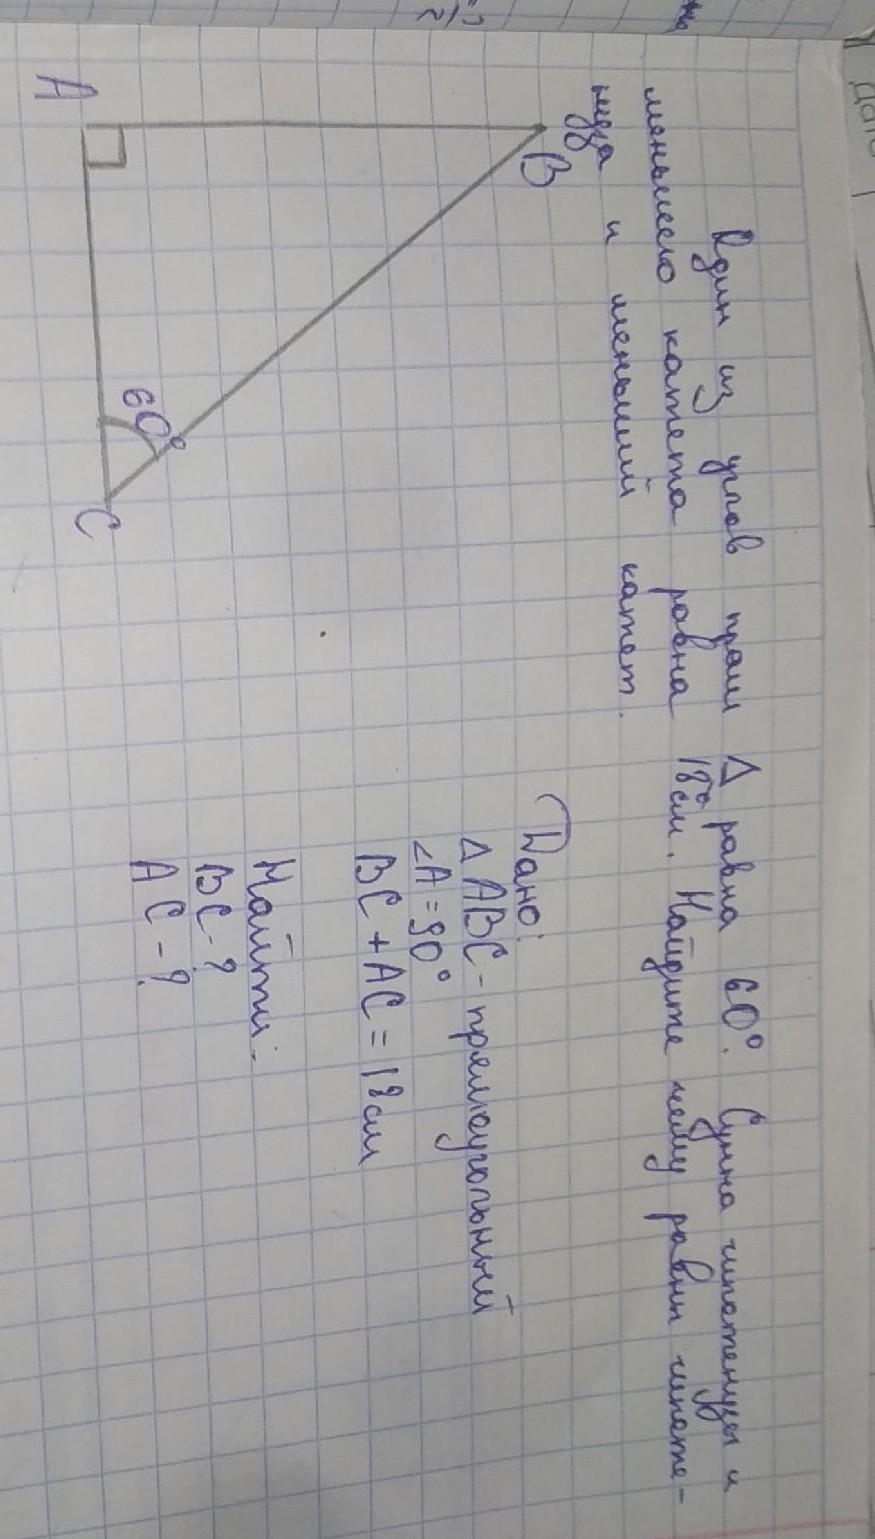 Один из углов прям △ равна 60°. Сумма гипотенузы и
меньшего катета равна 18 см. Найдите чему равны гипоте-
нуза и меньший катет.
Дано:
△ ABC - прямоугольный
∠A = 90°
BC + AC = 18 см
Найти:
BC - ?
AC - ?
B
A
60°
C